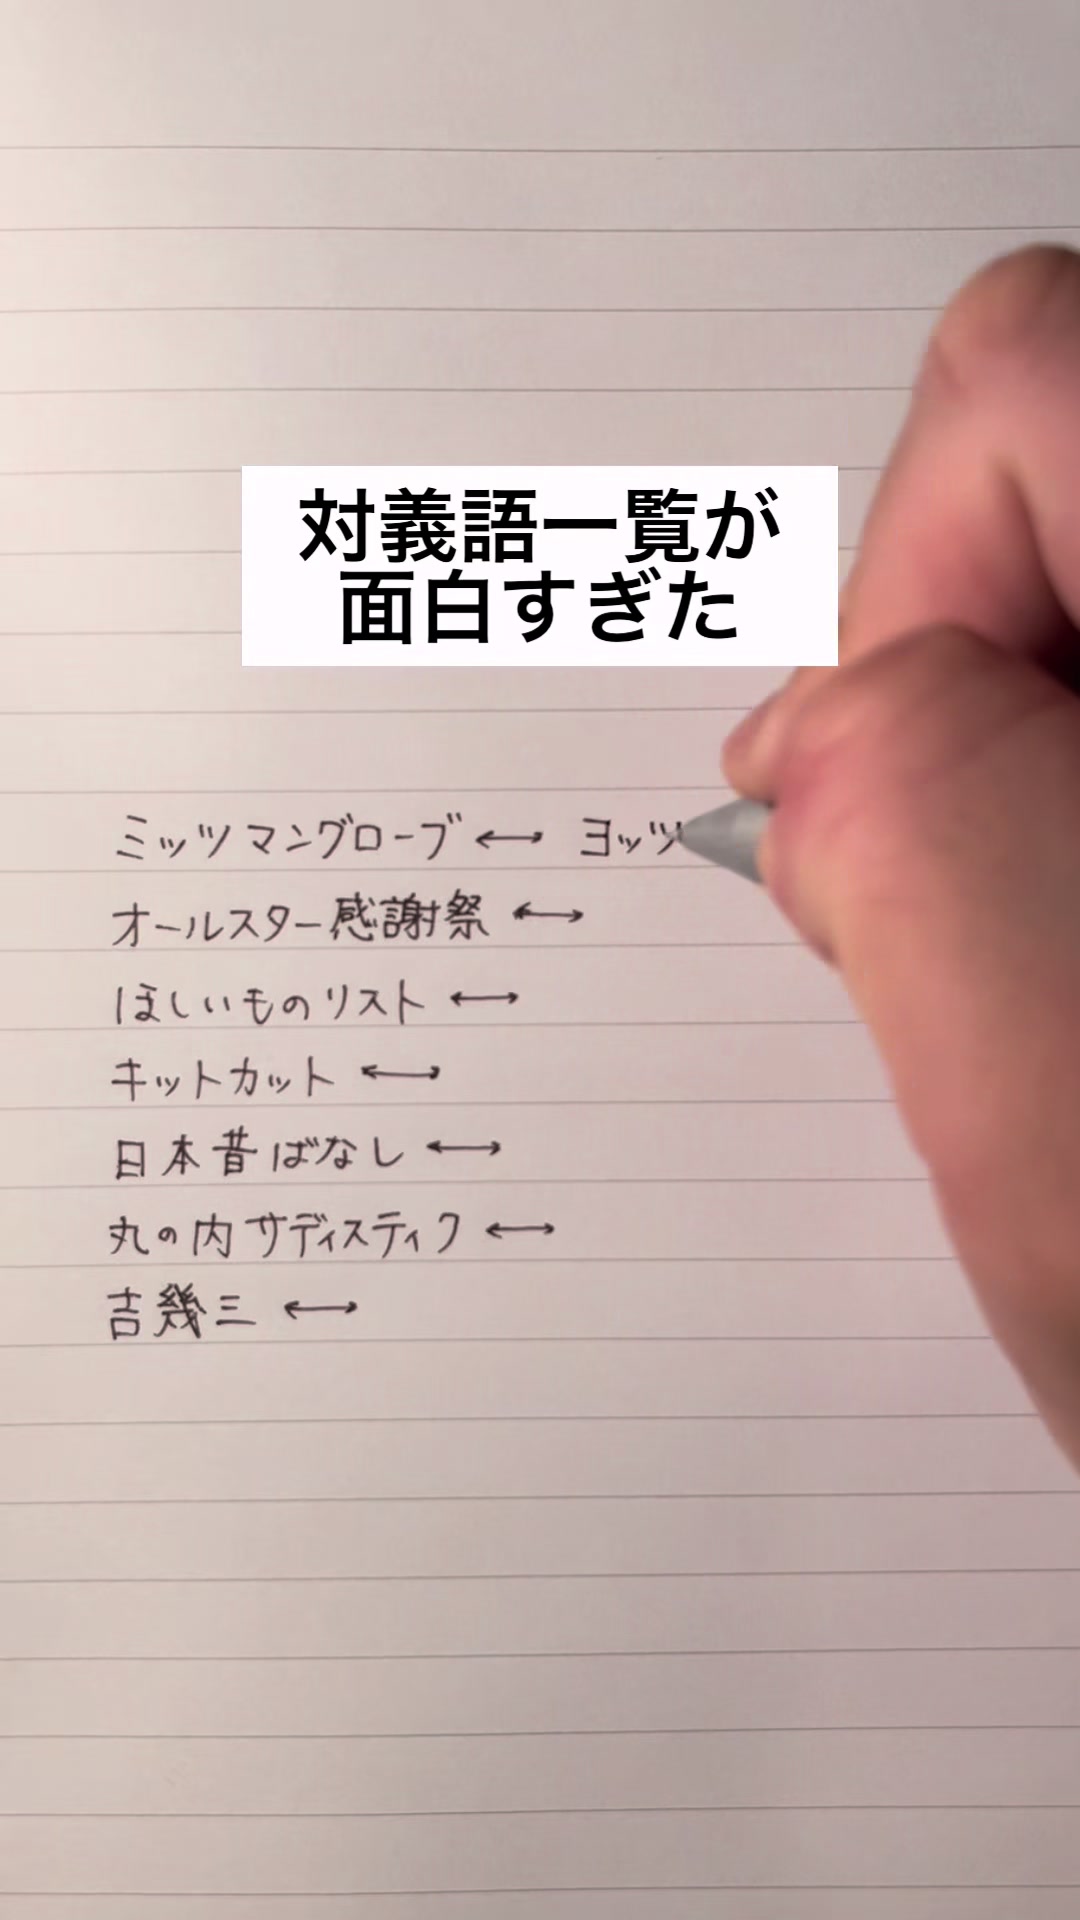 対義語一覧が
面白すぎた
ミッツマングローブ ⟷ ヨッツ
オールスター感謝祭 ⟷
ほしいものリスト ⟷
キットカット ⟷
日本昔ばなし ⟷
丸の内サディスティック ⟷
吉幾三 ⟷